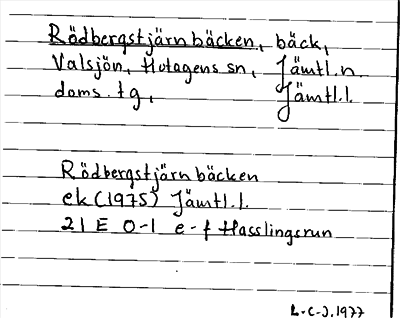 Rödbergstjärnbäcken, bäck,
Valsjön, Hotagens sn, Jämtl.n.
doms. tg, Jämtl.l.
Rödbergstjärnbäcken
ek (1975) Jämtl.l.
21 E 0-1 e-f Hasslingsrun
L-C-J. 1977